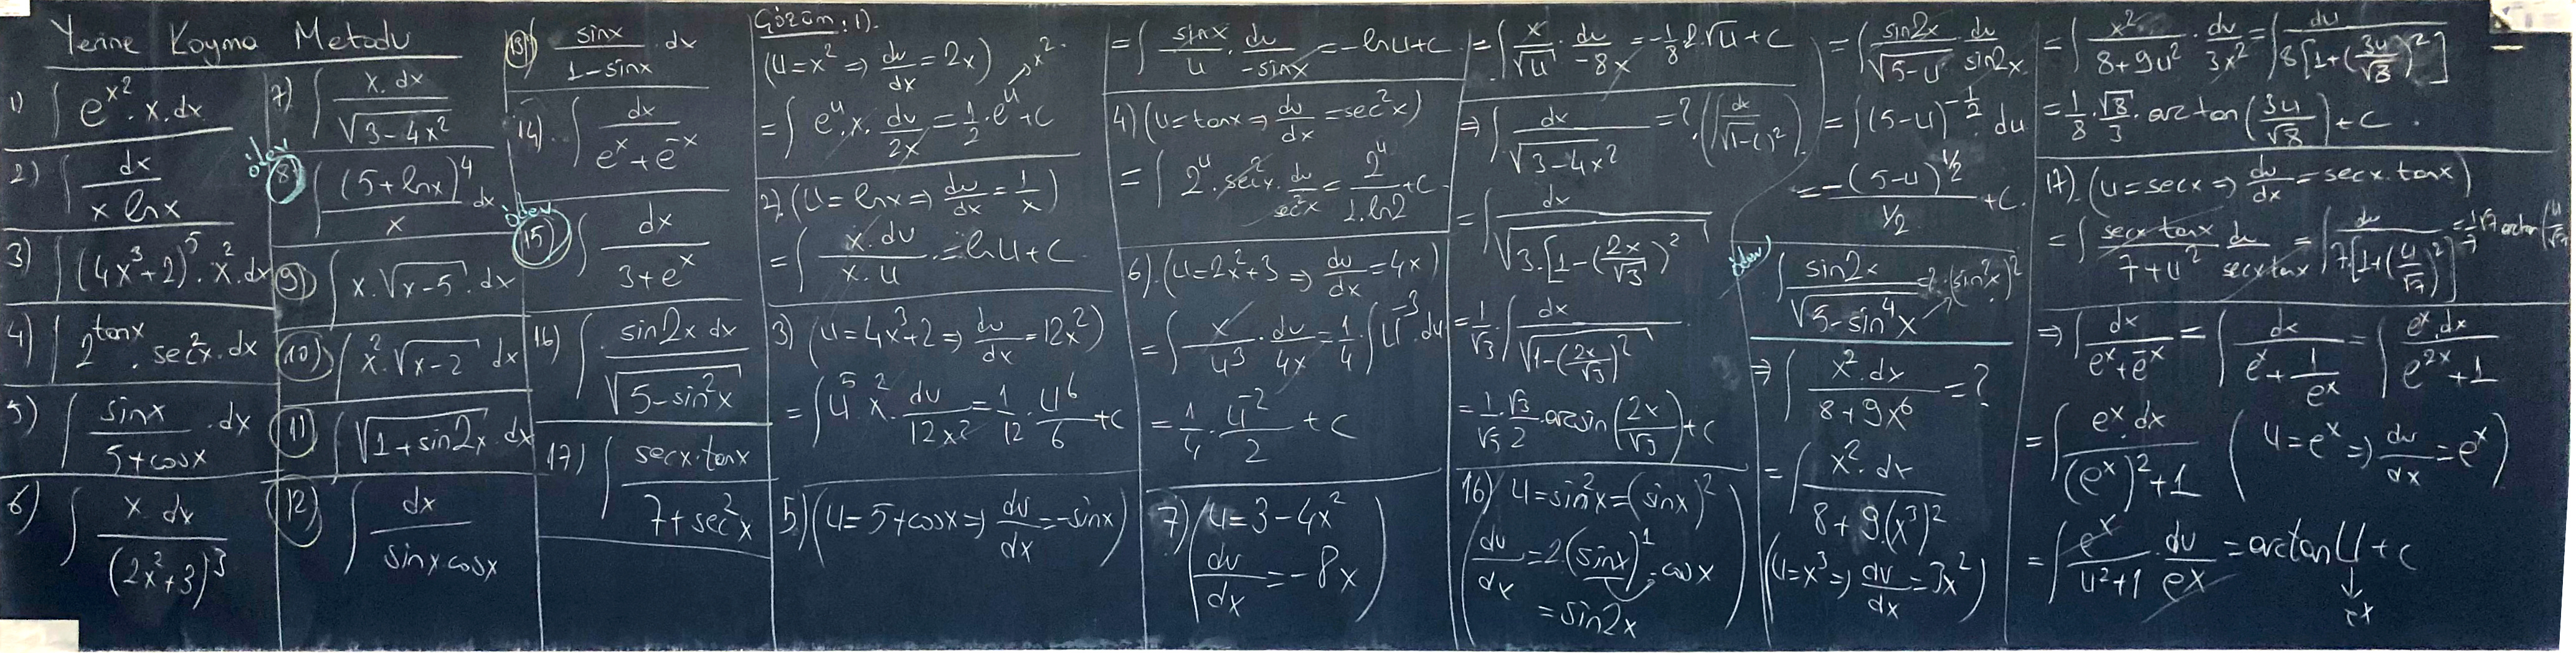 Yerine Koyma Metodu
1) ∫ e^(x²) . x . dx
2) ∫ dx / (x lnx)
3) ∫ (4x³+2)⁵ . x² . dx
4) ∫ 2^(tanx) . sec²x . dx
5) ∫ sinx / (5+cosx) . dx
6) ∫ x dx / (2x²+3)³
7) ∫ x . dx / √(3-4x²)
ödev
8) ∫ (5+lnx)⁴ / x dx
9) ∫ x . √(x-5) . dx
10) ∫ x² . √(x-2) dx
11) ∫ √(1+sin2x) . dx
12) ∫ dx / (sinx cosx)
13) ∫ sinx / (1-sinx) . dx
14) ∫ dx / (e^x + e^-x)
ödev
15) ∫ dx / (3+e^x)
16) ∫ sin2x dx / √(5-sin²x)
17) ∫ secx . tanx / (7+sec²x)
Çözüm: 1).
(u=x² ⇒ du/dx = 2x)
= ∫ e^u . x . du/2x = 1/2 . e^u + c
→ x²
2) (u=lnx ⇒ du/dx = 1/x)
= ∫ x . du / (x . u) = lnu + c
3) (u=4x³+2 ⇒ du/dx = 12x²)
= ∫ u⁵ . x² . du/12x² = 1/12 . u⁶/6 + c
5) (u=5+cosx ⇒ du/dx = -sinx)
= ∫ sinx/u . du/-sinx = -lnu+c
4) (u=tanx ⇒ du/dx = sec²x)
= ∫ 2^u . sec²x . du/sec²x = 2^u / (1.ln2) + c
6). (u=2x²+3 ⇒ du/dx = 4x)
= ∫ x/u³ . du/4x = 1/4 ∫ u^-3 . du
= 1/4 . u^-2 / 2 + c
7) (u=3-4x²
du/dx = -8x)
= ∫ x/√u . du/-8x = -1/8 2.√u + c
⇒ ∫ dx / √(3-4x²) = ? . (∫ dx / √(1-( )²))
= ∫ dx / √(3.[1-(2x/√3)²])
= 1/√3 . ∫ dx / √(1-(2x/√3)²)
= 1/√3 . √3/2 . arcsin(2x/√3) + c
16) (u=sin²x=(sinx)²
du/dx = 2.(sinx)¹ . cosx
= sin2x)
= ∫ sin2x / √(5-u) . du / sin2x
= ∫ (5-u)^(-1/2) . du
= -(5-u)^(1/2) / (1/2) + c.
ödev
∫ sin2x / √(5-sin⁴x) = ? (sin²x)²
⇒ ∫ x² . dx / (8+9x⁶) = ?
= ∫ x² . dx / (8+9.(x³)²)
(u=x³ ⇒ du/dx = 3x²)
= ∫ x² / (8+9u²) . du/3x² = ∫ du / 8[1+(3u/√8)²]
= 1/8 . √8/3 . arctan(3u/√8) + c .
17). (u=secx ⇒ du/dx = secx.tanx)
= ∫ secx tanx / (7+u²) du / secx tanx = ∫ du / 7[1+(u/√7)²] = 1/7 √7 arctan(u/√7)
⇒ ∫ dx / (e^x+e^-x) = ∫ dx / (e^x + 1/e^x) = ∫ e^x . dx / (e^2x + 1)
= ∫ e^x . dx / ((e^x)²+1) (u=e^x ⇒ du/dx = e^x)
= ∫ e^x / (u²+1) . du/e^x = arctan u + c
↓
e^x